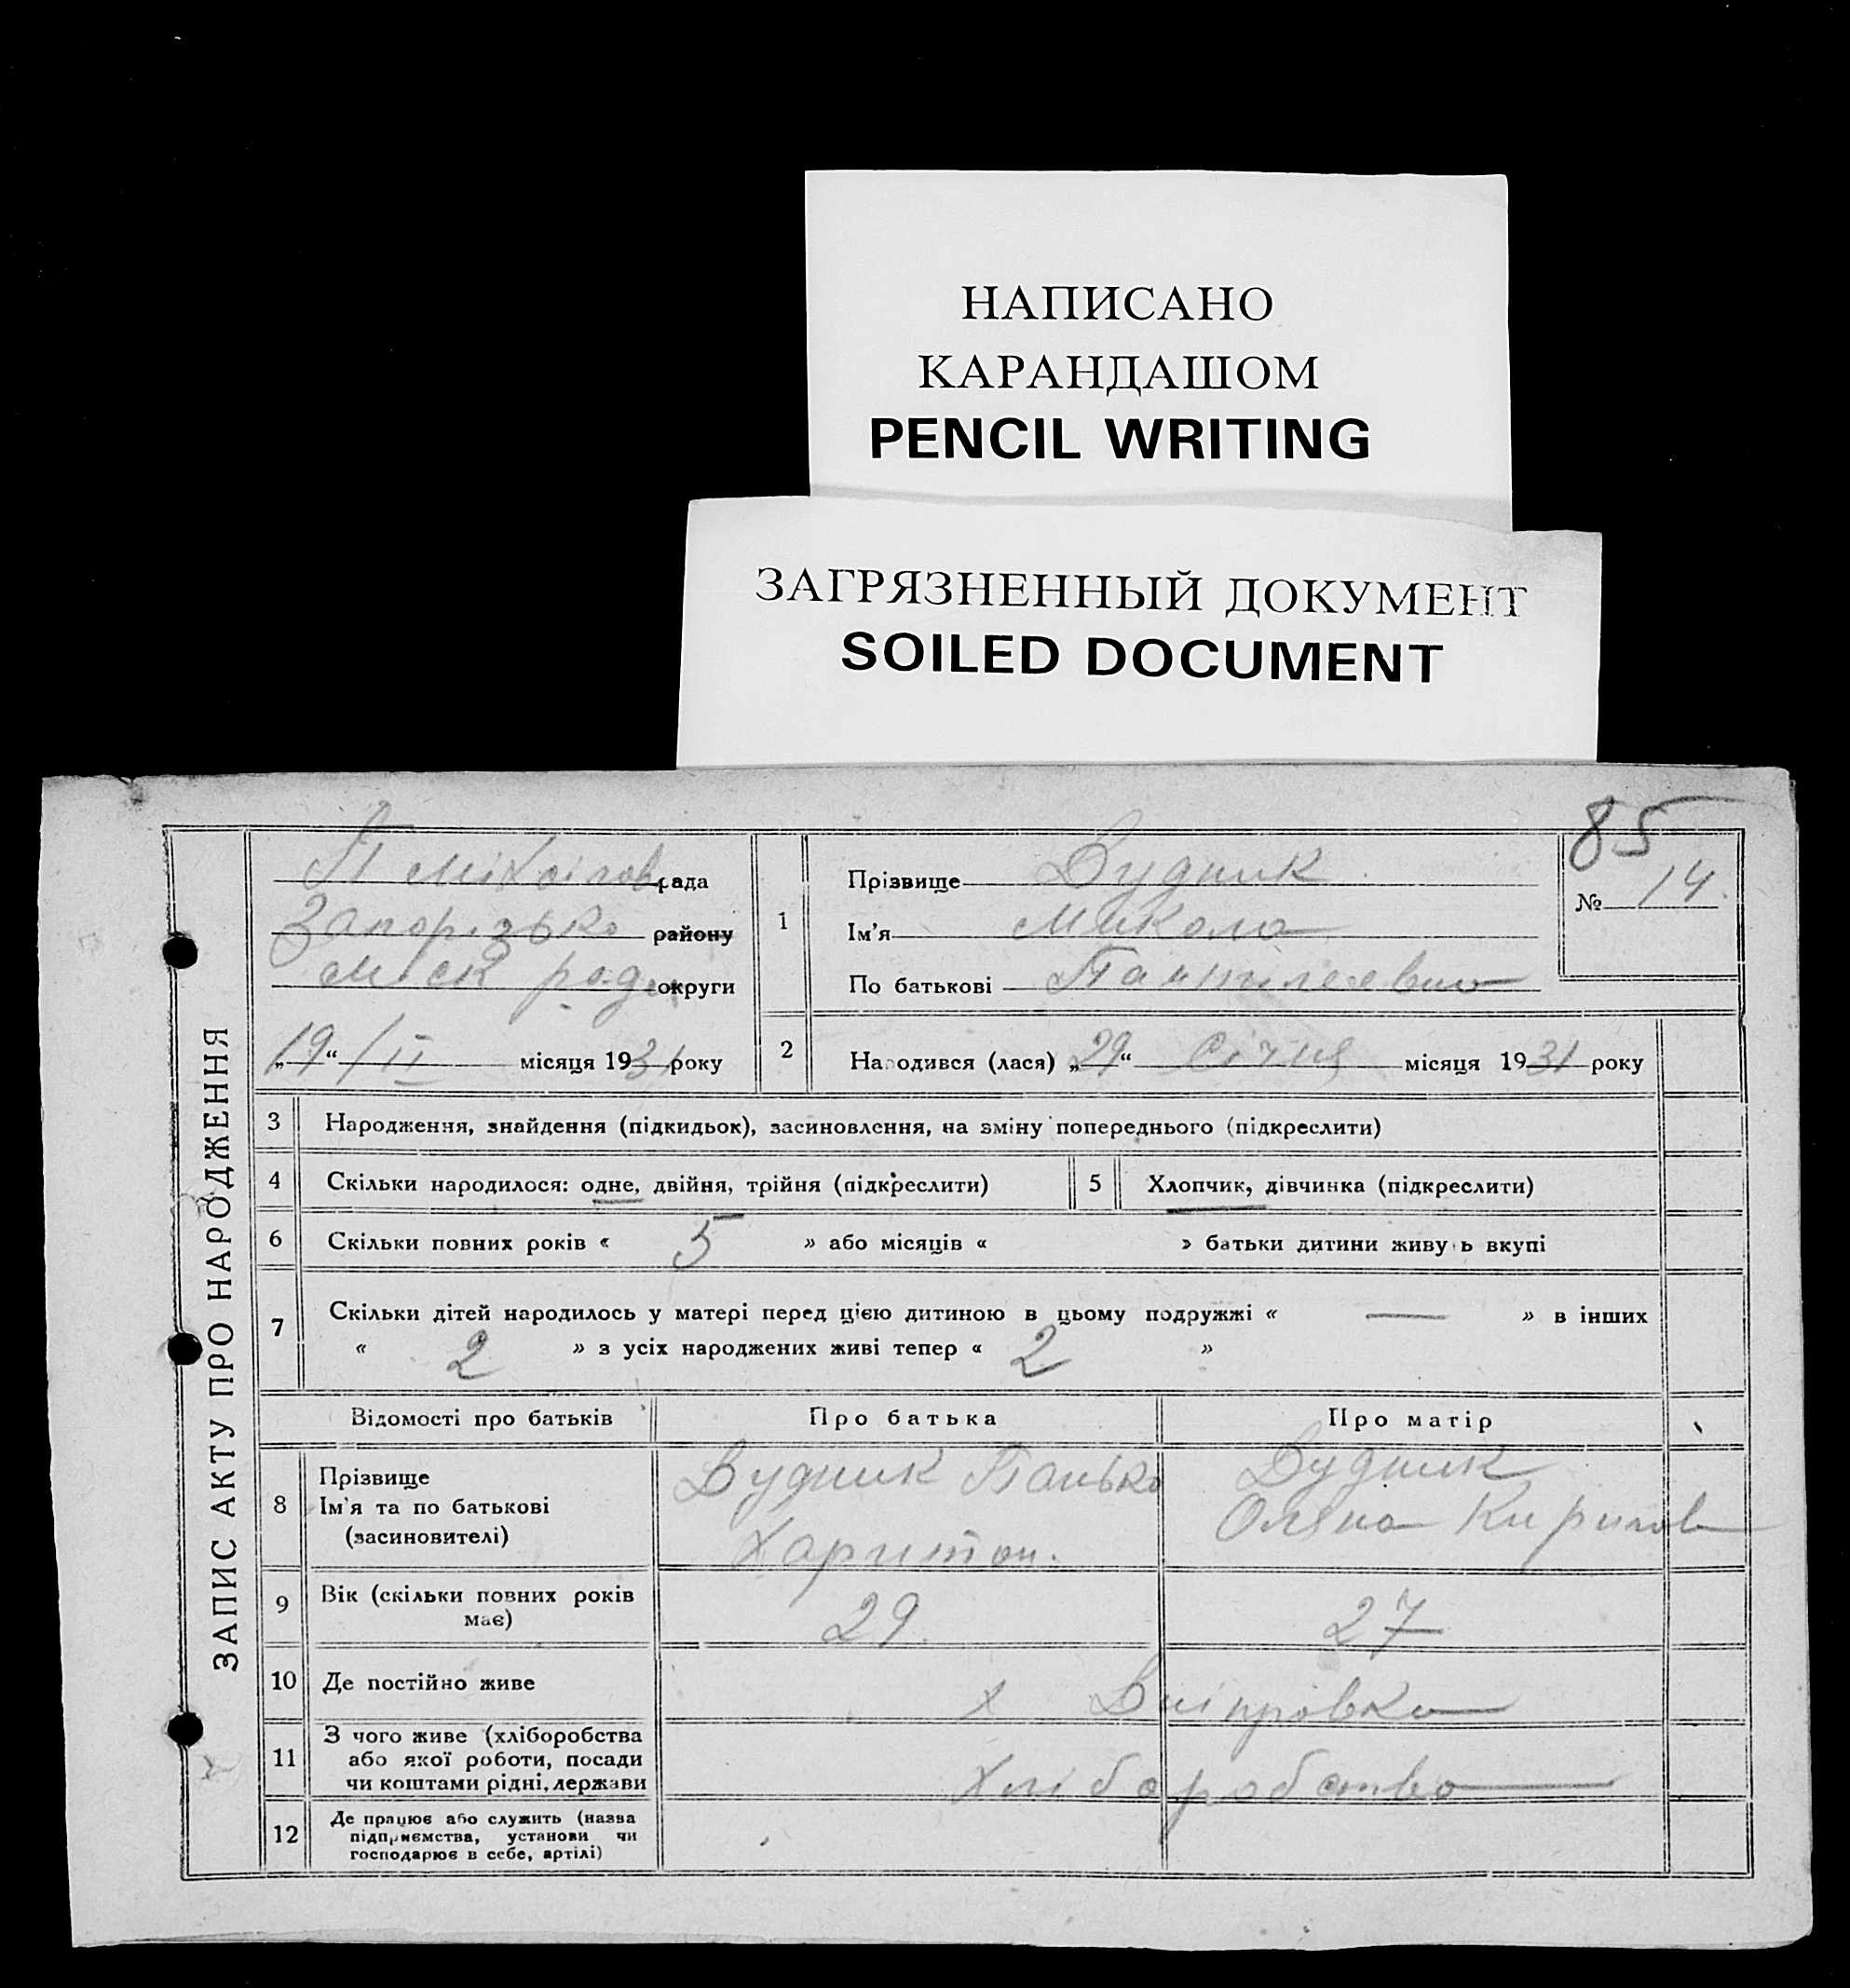 НАПИСАНО
КАРАНДАШОМ
PENCIL WRITING
ЗАГРЯЗНЕННЫЙ ДОКУМЕНТ
SOILED DOCUMENT
85
ЗАПИС АКТУ ПРО НАРОДЖЕННЯ
рада
Запорізько району
Міск ради округи
„19“ /II місяця 1931 року
1
Прізвище Дудник
Ім'я Микола
По батькові
№ 14.
2 Народився (лася) „29“ Січня місяця 1931 року
3 Народження, знайдення (підкидьок), засиновлення, на зміну попереднього (підкреслити)
4 Скільки народилося: одне, двійня, трійня (підкреслити) 5 Хлопчик, дівчинка (підкреслити)
6 Скільки повних років « 5 » або місяців « » батьки дитини живуть вкупі
7 Скільки дітей народилось у матері перед цією дитиною в цьому подружжі « — » в інших
« 2 » з усіх народжених живі тепер « 2 »
Відомості про батьків Про батька Про матір
8 Прізвище Дудник Панько Дудник
Ім'я та по батькові Оляна Кирилов
(засиновителі) Харитон.
9 Вік (скільки повних років має) 29. 27
10 Де постійно живе х Дніпровка
11 З чого живе (хліборобства
або якої роботи, посади Хліборобство
чи коштами рідні, держави
12 Де працює або служить (назва
підприємства, установи чи
господарює в себе, артілі)